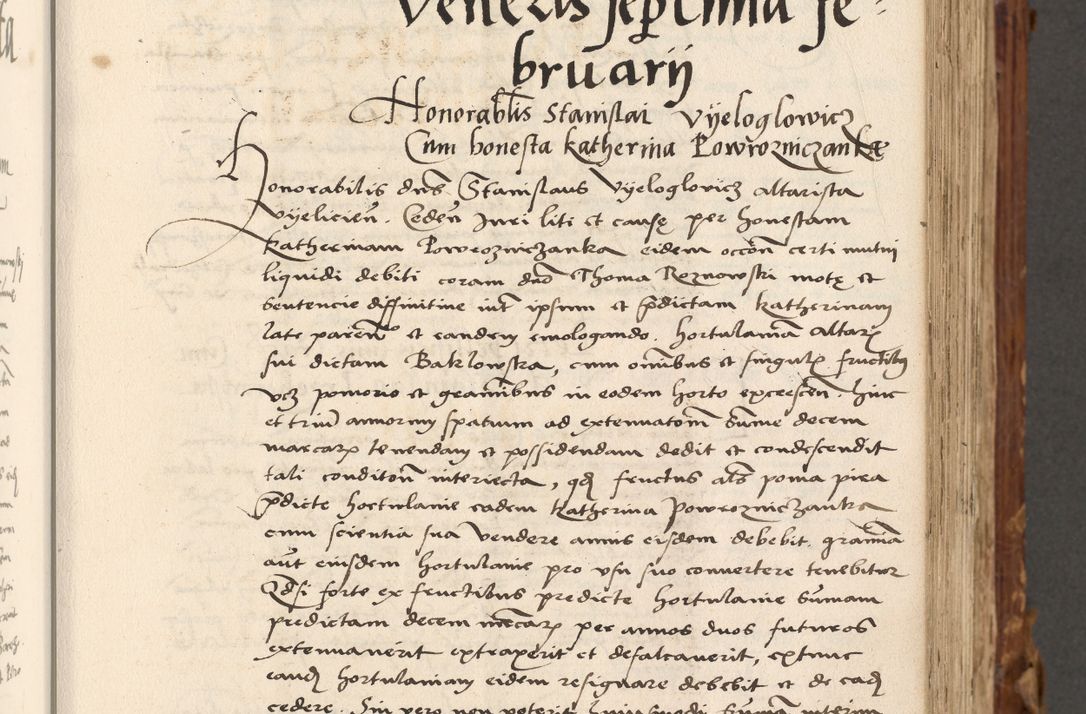 Veneris septima fe-
bruarij
Honorabilis Stanislai Vyeloglowicz
Cum honesta Katherina Powrozniczanka
Honorabilis dns Stanislaus Vyeloglowicz altarista
vyelicien. Ceden Juri liti et cause per honestam
Katherinam Powrozniczanka eidem occon certi mutui
liquidi debiti coram dno Thoma Reznowski mote et
Sentencie diffinitiue int ipsum et pdictam Katherinam
late paren et eandem emologando. hortulaniam altaris
sui dictam Baklowska, cum omibus et singulis fructibus
vcz pomorio et graminibus in eodem horto excrescen. hinc
et trium annorum spatium ad extenuationem Summe decem
marcarum tenendam et possidendam dedit et condescendit
tali conditione interiecta, qd fructus als poma pira
pdicte hortulanie eadem Katherina Powrozniczanka
cum scientia sua vendere annis eisdem debebit. gramina
aut eiusdem hortulanie pro vsu suo conuertere tenebitur
Qdsi forte ex fructibus predicte hortulanie Summam
predictam decem mrcarum per annos duos futuros
extenuauerit extraxerit et defalcauerit, extunc
eand hortulaniam eidem resignare debebit et de ead
cedere. Sin vero non poterit huiusmodi Summa interim